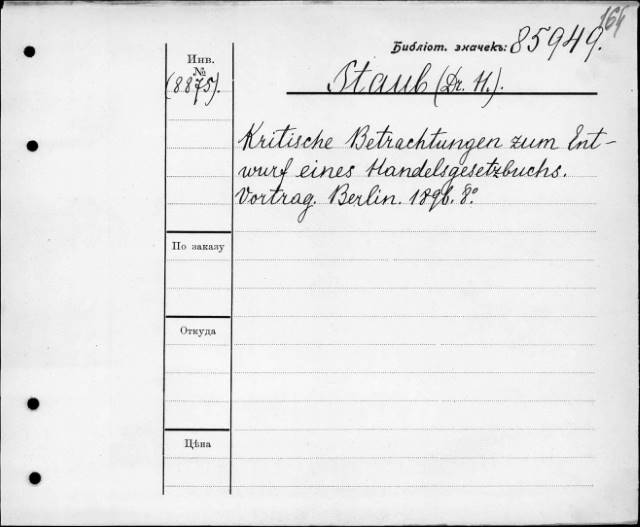 164
Библіот. значекъ: 85949.
Инв.
№
(8875).
Staub (Dr. H.).
Kritische Betrachtungen zum Ent-
wurf eines Handelsgesetzbuchs.
Vortrag. Berlin. 1896. 8°
По заказу
Откуда
Цѣна